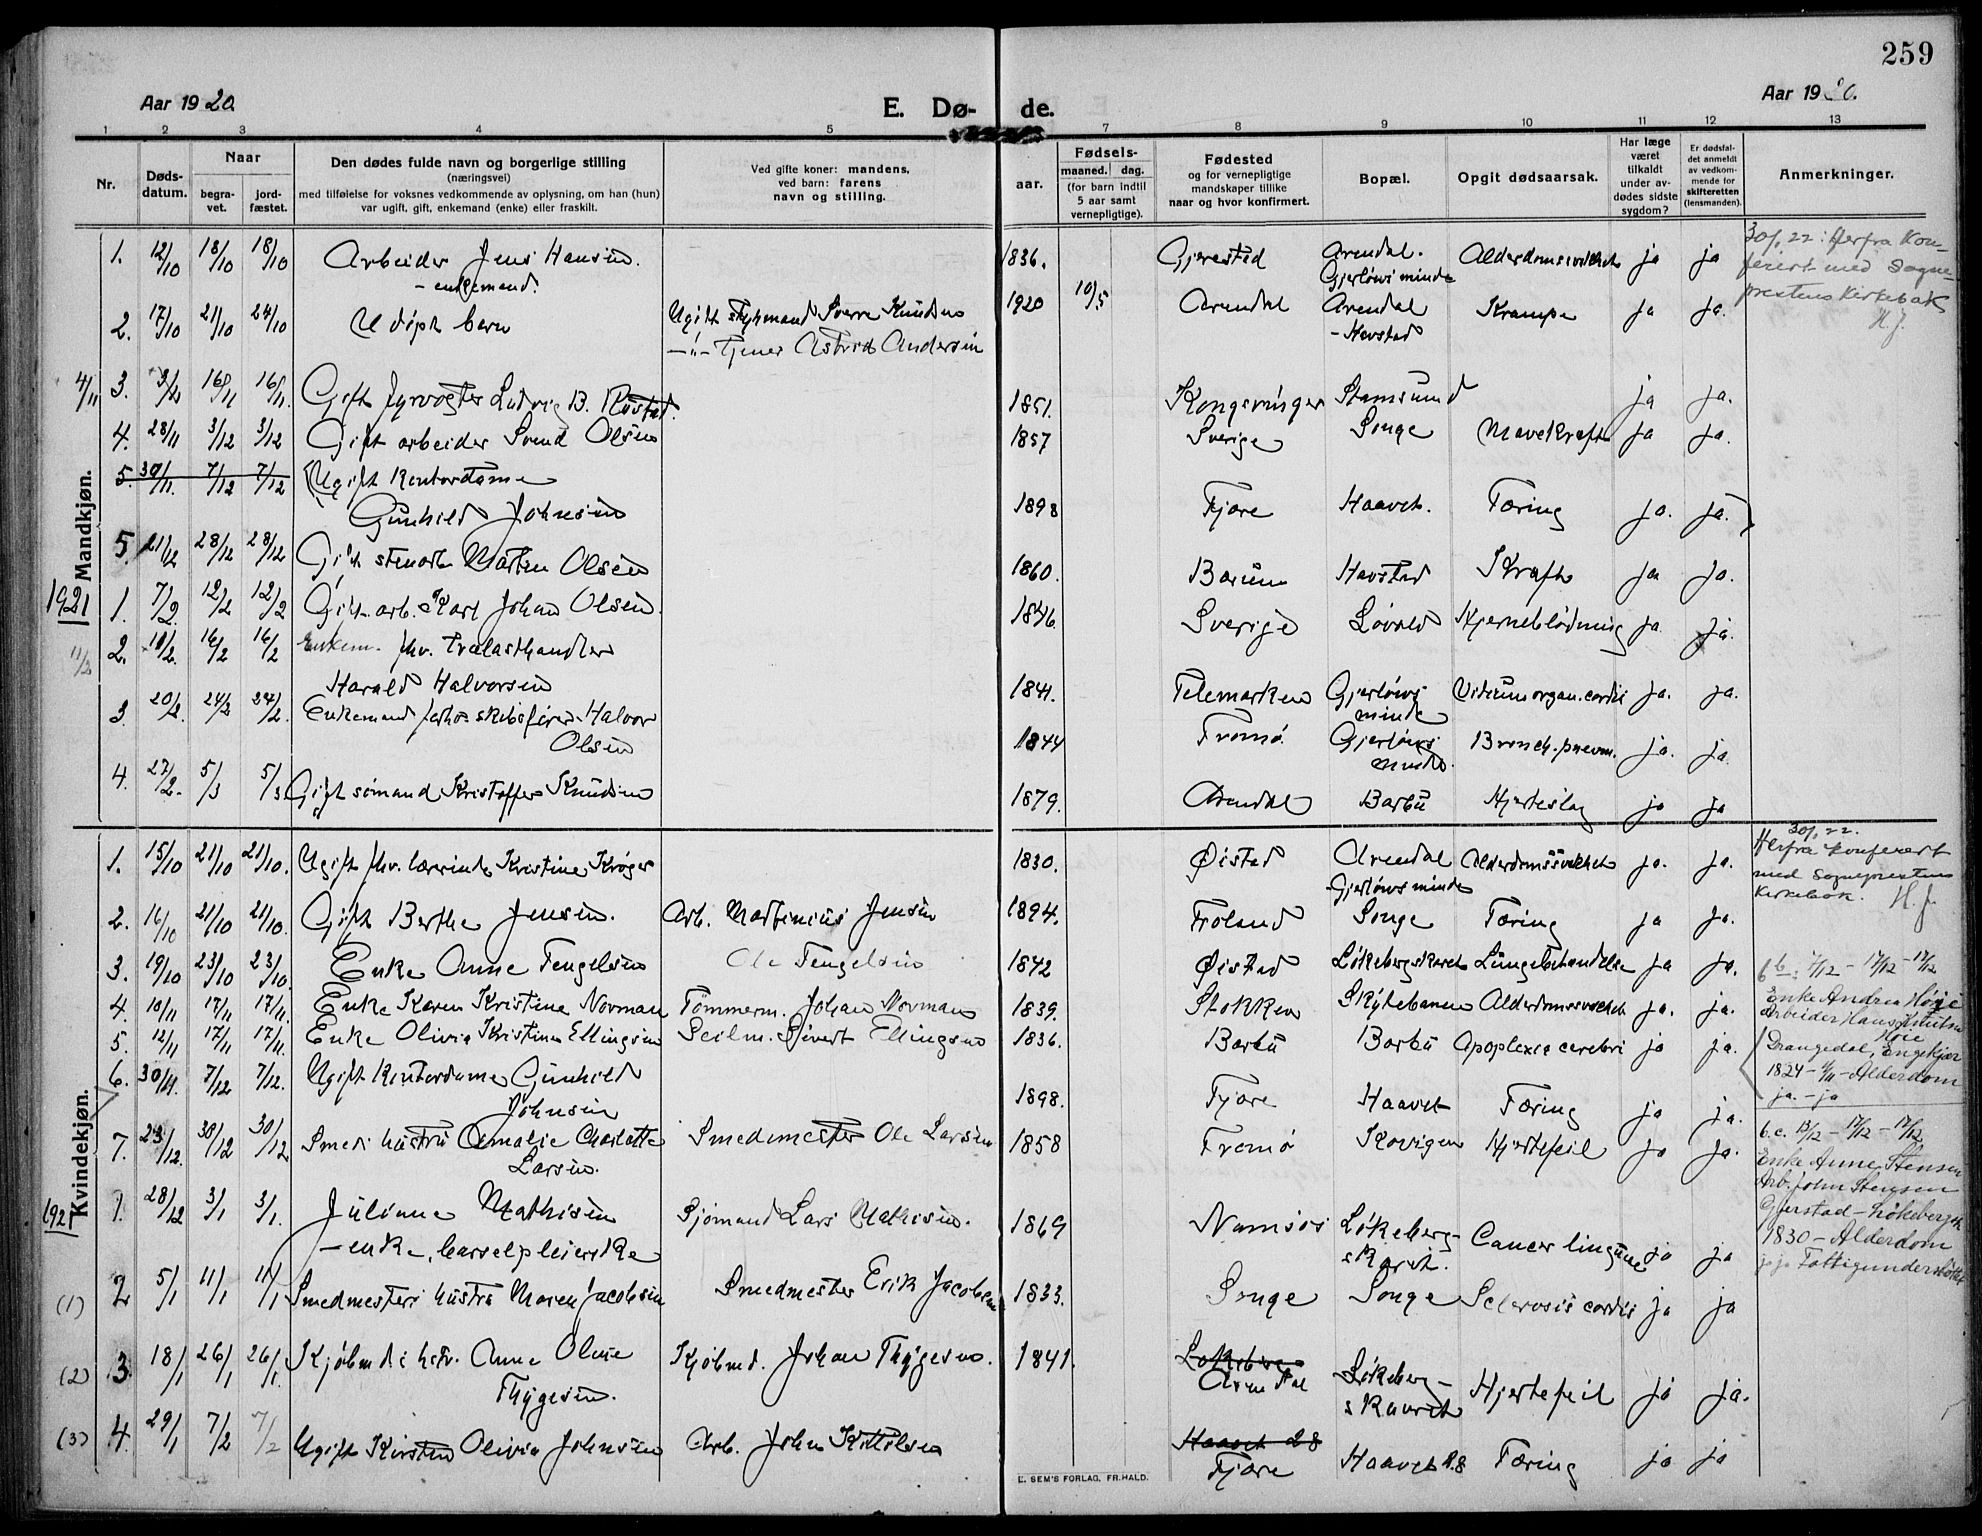 259
Aar 1920.
E. Dø-
de.
Aar 1920.
1 2 3 4 5 7 8 9 10 11 12 13
Nr.
Døds-
datum.
Naar
begra-
vet.
jord-
fæstet.
Den dødes fulde navn og borgerlige stilling
(næringsvei)
med tilføielse for voksnes vedkommende av oplysning, om han (hun)
var ugift, gift, enkemand (enke) eller fraskilt.
Ved gifte koner: mandens,
ved barn: farens
navn og stilling.
aar.
Fødsels-
maaned. dag.
(for barn indtil
5 aar samt
vernepligtige).
Fødested
og for vernepligtige
mandskaper tillike
naar og hvor konfirmert.
Bopæl.
Opgit dødsaarsak.
Har læge
været
tilkaldt
under av-
dødes sidste
sygdom?
Er dødsfal-
det anmeldt
av vedkom-
mende for
skifteretten
(lensmanden).
Anmerkninger.
Mandkjøn.
1. 12/10 18/10 18/10 Arbeider Jens Hansen. 1836. Gjerestad Arendal. Alderdomssvakhet ja ja
- enkemand. Gjerløws minde
2. 17/10 21/10 24/10 Udøpt barn Ugift styrmand Sverre Knudsen 1920 10/5 Arendal Arendal Krampe ja ja.
-"- Tjener Astrid Andersen - Havstad
4/11 3. 16/11 16/11. Gift fyrvogter Ludvig B. Rustad. 1851. Kongsvinger Stamsund ja ja.
4. 28/11 3/12 3/12 Gift arbeider Svend Olsen 1857 Sverige Songe Mavekræft ja ja.
5. 30/11. 7/12 7/12 Ugift Kontordame
Gunhild Johnsen 1898 Fjære Haavet. Tæring ja. ja.
5. 21/12 28/12 28/12 Gift stenarb. Martin Olsen 1860. Bærum Havstad Kræft ja ja.
1921
1. 7/2. 12/2 12/2 Gift arb. Karl Johan Olsen. 1846. Sverige Løvold Hjerneblødning ja ja.
11/2 2. 10/2. 16/2 16/2 Enkem. fhv. trælasthandler
Harald Halvorsen 1841. Telemarken Gjerløws minde Vitium organ. cordis ja. ja.
3. 20/2. 24/2 24/2. Enkemand forhv. skibsfører Halvor
Olsen 1844 Tromø. Gjerløws minde. Bronch. pnevm. ja. ja.
4. 27/2. 5/3 5/3 Gift sømand Kristoffer Knudsen 1879. Arendal Barbu Hjerteslag ja ja
30/1 22: Herfra Kon-
ferert med Sogne-
prestens Kirkebok
H. J.
Kvindekjøn.
1. 15/10 21/10 21/10. Ugift fhv. lærerinde Kristine Krøger 1830. Øistad Arendal Alderdomssvakhet ja. ja.
Gjerløws minde
2. 16/10 21/10 21/10. Gift Berthe Jensen. Arb. Martinius Jensen 1894. Froland Songe Tæring ja ja.
3. 19/10 23/10 23/10. Enke Anne Tengelsen Ole Tengelsen 1842 Øistad Løkebergskaret Lungebetændelse ja ja.
4. 10/11 17/11 17/11. Enke Karen Kristine Norman Tømmerm. Johan Norman 1839. Stokken Skytebanen Alderdomssvakhet ja. ja.
5. 12/11 17/11 17/11. Enke Olivia Kristine Ellingsen Seilm. Sivert Ellingsen 1836. Barbu Barbu Apoplexia cerebri ja ja.
6. 30/11. 7/12 7/12. Ugift Kontordame Gunhild
Johnsen 1898. Fjære Haavet Tæring ja ja.
7. 23/12. 30/12 30/12 Smeds hustru Amalie Charlotte Smedemester Ole Larsen 1858 Tromø Skovigen Hjertefeil ja ja.
Larsen.
1921
1. 28/12 3/1 3/1. Juliane Mathisen Sjømand Lars Mathisen. 1869 Namsos Løkeberg- Cancer lingvae ja ja
- enke, barselpleierske skaret.
(1) 2 5/1 11/1 11/1 Smedmesters hustru Maren Jacobsen Smedmester Erik Jacobsen 1833. Songe Songe Sclerosis cordis ja ja
(2) 3. 18/1 26/1 26/1. Kjøbmds hstr. Anne Oline Kjøbmd. Johan Thygesen. 1841. Løkeberg Løkeberg-
Thygesen. Arendal skaaret Hjertefeil ja ja.
(3) 4. 29/1 7/2 7/2 Ugift Kirsten Olivia Johnsen Arb. John Kittilsen Haavet d 8
Fjære Haavet d. 8 Tæring ja ja
30/1 22.
Herfra konferert
med Sogneprestens
Kirkebok. H. J.
6 b: 7/12 - 17/12 - 17/12
Enke Andrea Høie
Arbeider Hans Knutsen
Høie
Drangedal, Engekjær
1824 - - Alderdom
ja. - ja
6. c. 13/12 - 17/12 - 17/12
Enke Anne Stensen
Arb. John Stensen
Gjerstad - Løkebergsk
1830 - Alderdom
ja ja Fattigunderstøttet
E. SEM'S FORLAG, FR.HALD.